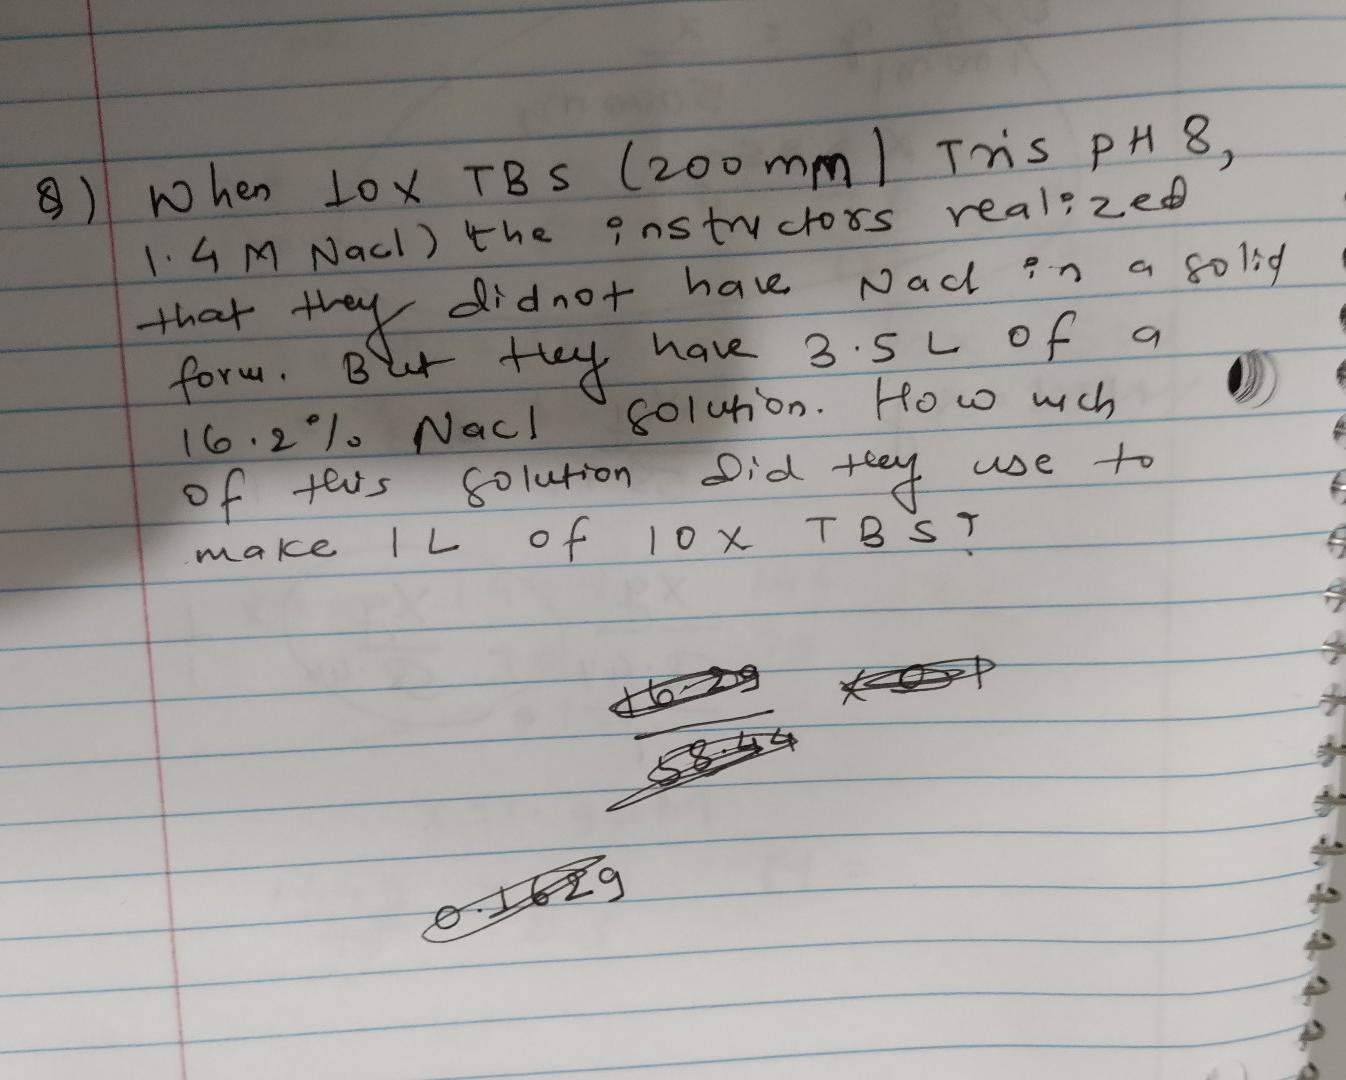 Q) When 10X TBS (200 mM) Tris pH 8,
1.4 M Nacl) the instructors realized
that they didnot have Nacl in a solid
form. But they have 3.5 L of a
16.2% Nacl solution. How uch
of this solution Did they use to
make 1 L of 10x TBS?
16.2g
58.44
0.162g